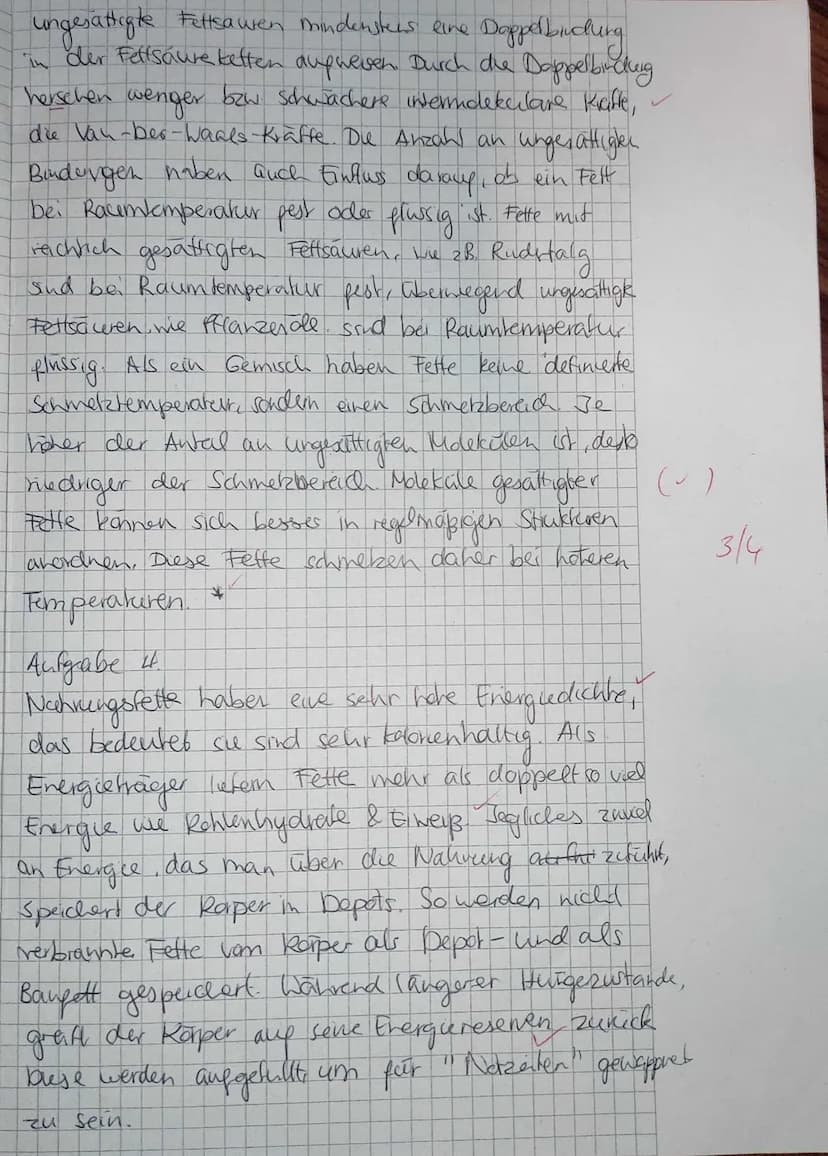 ungesättigte Fettsäuren mindestens eine Doppelbindung
in der Fettsäureketten aufweisen. Durch die Doppelbindung
herschen weniger bzw schwächere intermolekulare Kräfte,
die Van-Der-Waals-Kräfte. Die Anzahl an ungesättigten
Bindungen haben auch Einfluss darauf, ob ein Fett
bei Raumtemperatur fest oder flüssig ist. Fette mit
reichlich gesättigten Fettsäuren, wie zB. Rindstalg
sind bei Raumtemperatur fest, überwiegend ungesättigte
Fettsäuren, wie Pflanzenöle sind bei Raumtemperatur
flüssig. Als ein Gemisch haben Fette keine definierte
Schmelztemperatur, sondern einen Schmelzbereich. Je
höher der Anteil an ungesättigten Molekülen ist, desto
niedriger der Schmelzbereich. Moleküle gesättigter
Fette können sich besser in regelmäßigen Strukturen
anordnen. Diese Fette schmelzen daher bei höheren
Temperaturen. *
(✓)
3/4
Aufgabe 4.
Nahrungsfette haben eine sehr hohe Energiedichte,
das bedeutet sie sind sehr kalorienhaltig. Als
Energieträger liefern Fette mehr als doppelt so viel
Energie wie Kohlenhydrate & Eiweiß. Jegliches zuviel
an Energie, das man über die Nahrung zuführt,
speichert der Körper in Depots. So werden nicht
verbrannte Fette vom Körper als Depot- und als
Baufett gespeichert. Während längerer Hungerzustände,
greift der Körper auf seine Energiereserven zurück
Diese werden aufgefüllt, um für "Notzeiten" gewappnet
zu sein.